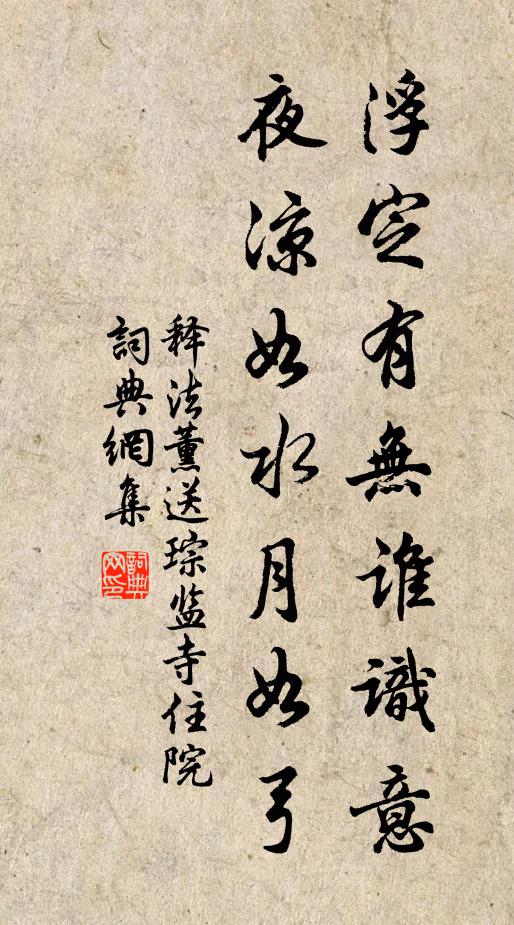 浮定有無誰識意
夜涼如水月如弓
释法薰送琮监寺住院
詞典網集
詞典網印